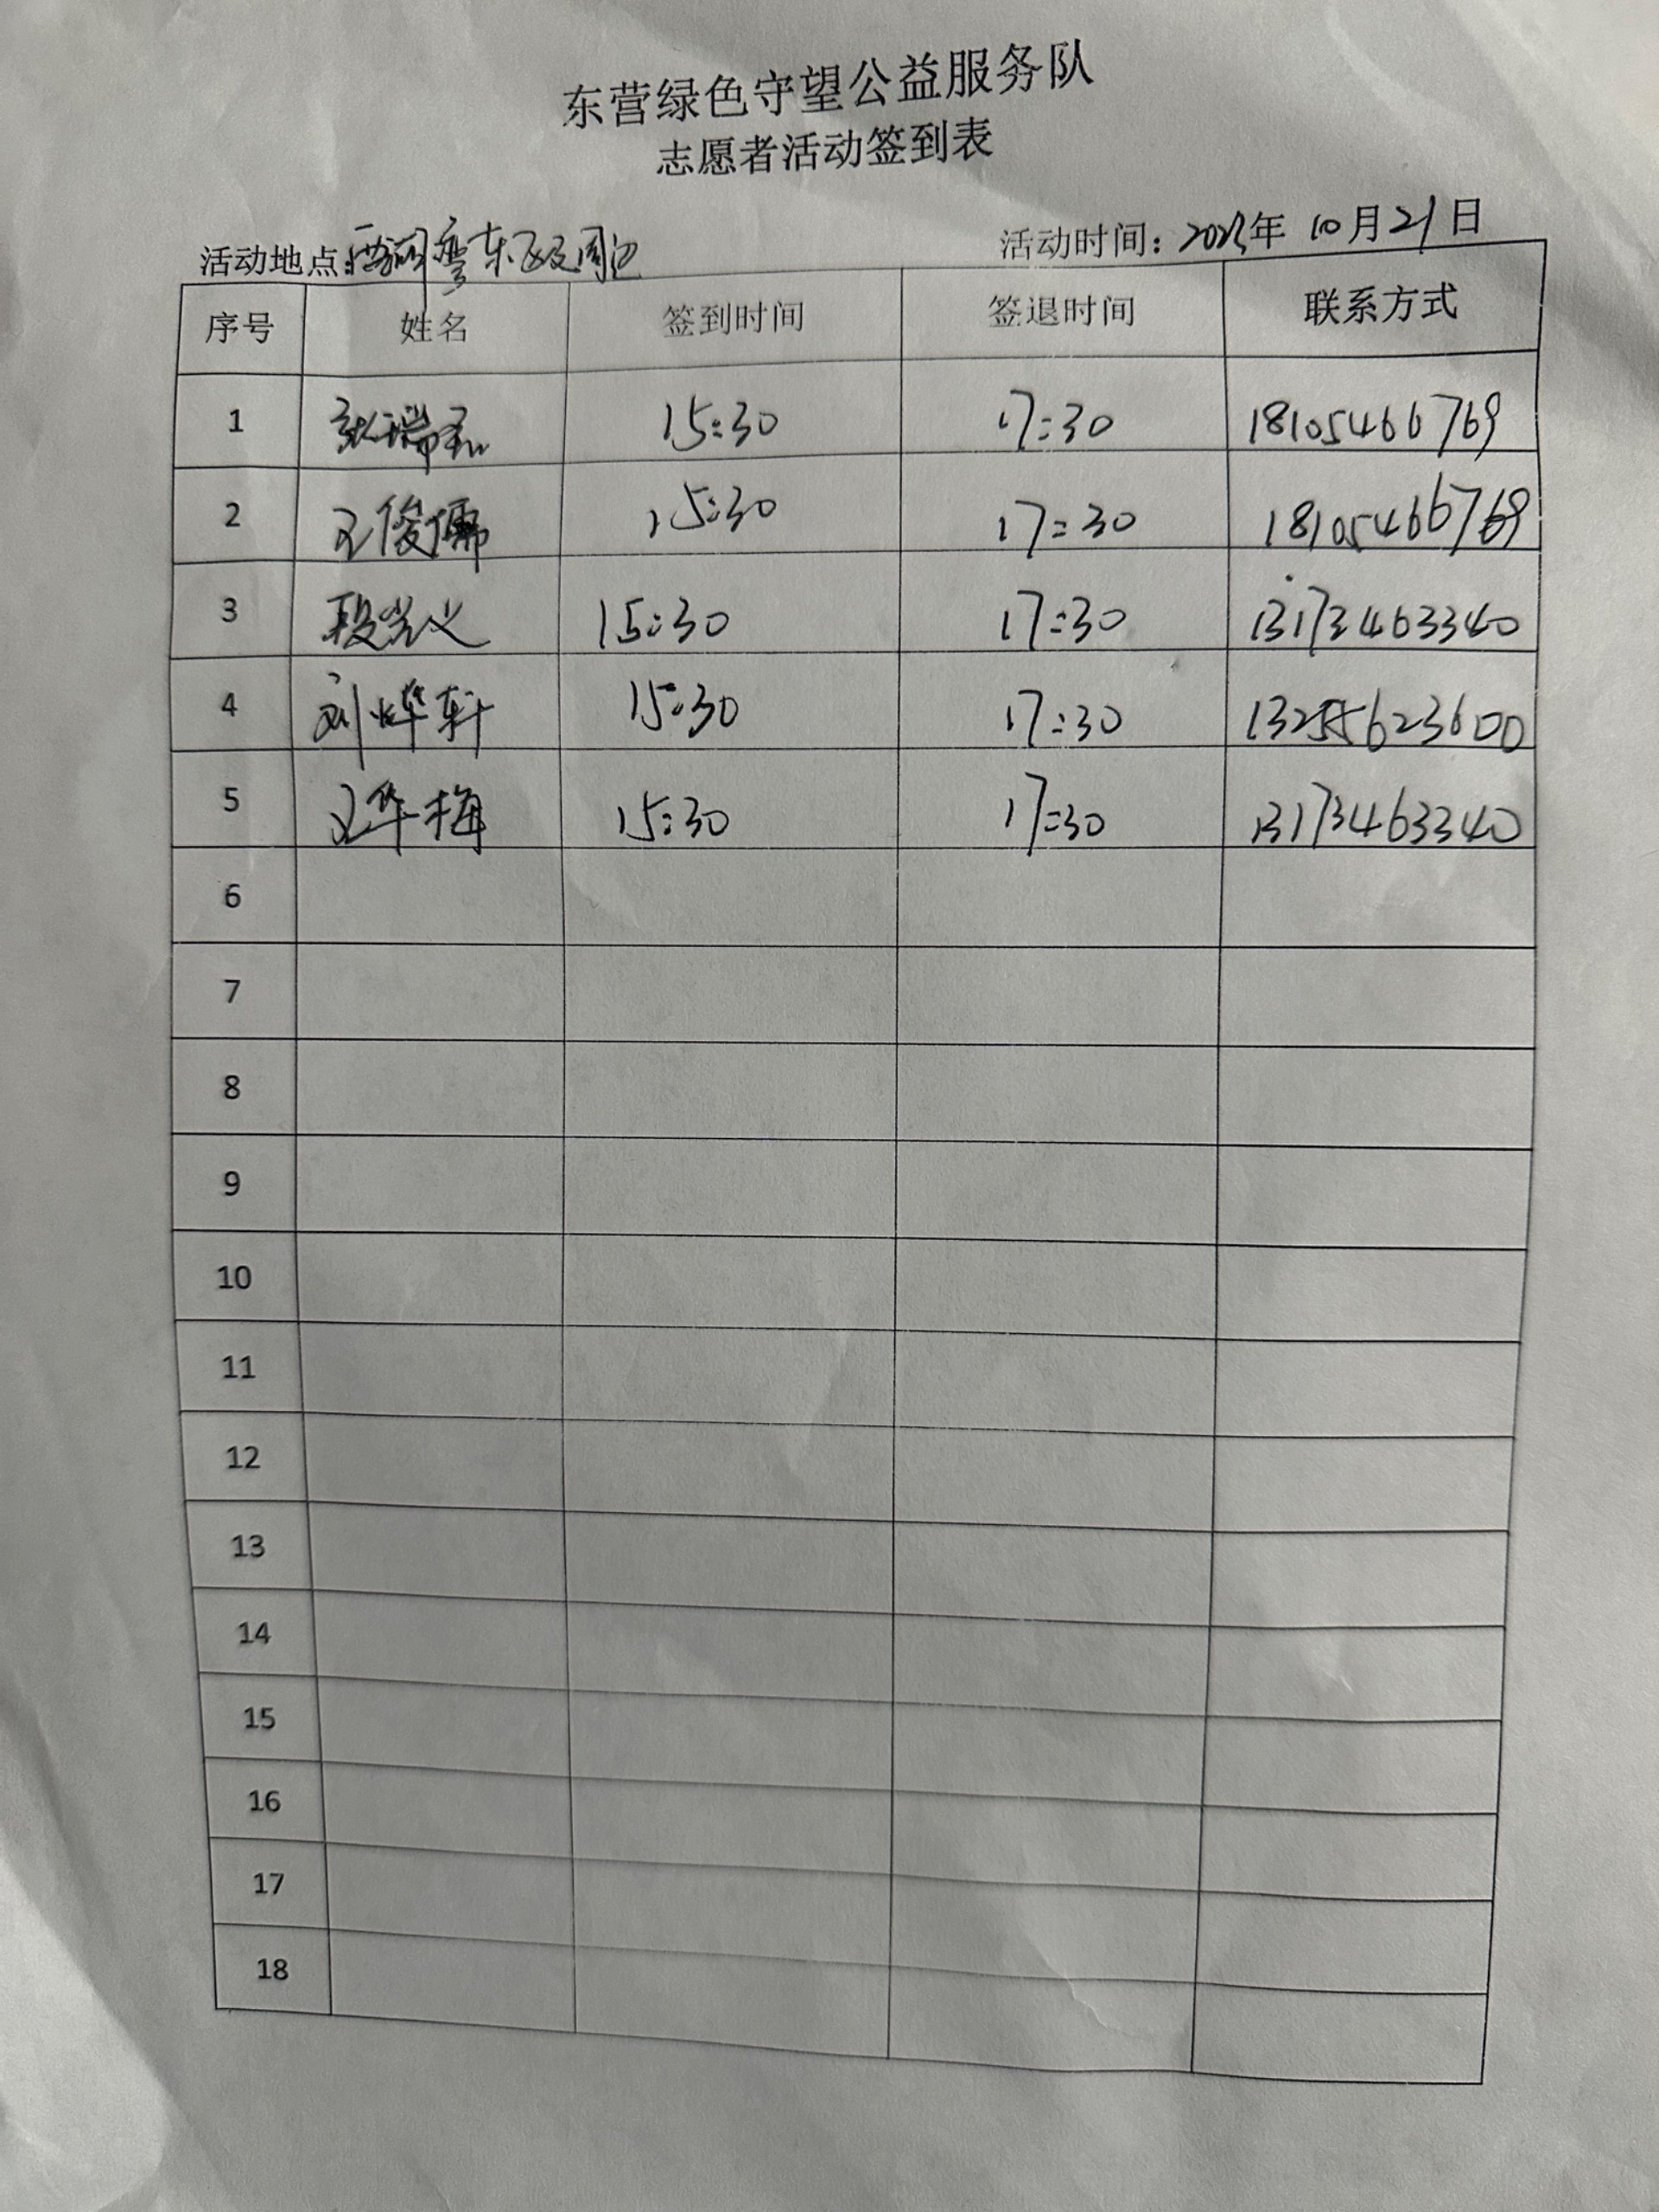 东营绿色守望公益服务队
志愿者活动签到表
活动地点: 东区及周边 活动时间: 2023年 10月21日
序号 姓名 签到时间 签退时间 联系方式
1 15:30 17:30 18105466769
2 王俊儒 15:30 17:30 18105466769
3 15:30 17:30 13173463340
4 刘烨轩 15:30 17:30 13255623600
5 王华梅 15:30 17:30 13173463340
6
7
8
9
10
11
12
13
14
15
16
17
18